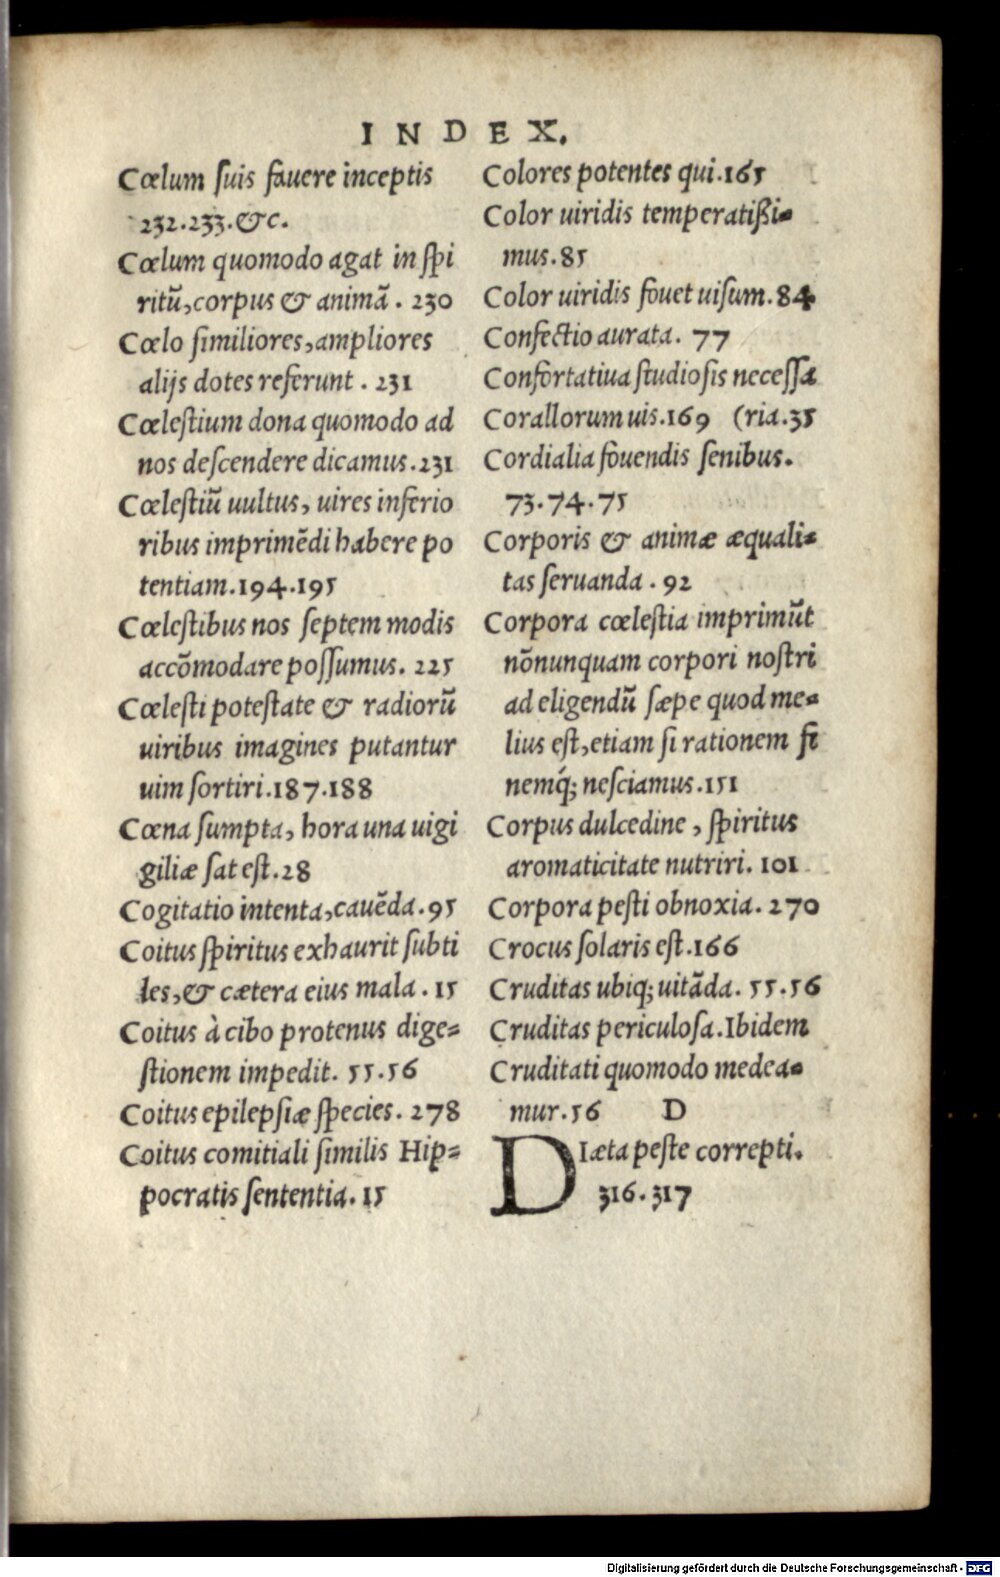 INDEX.
Cœlum ſuis fauere inceptis
232.233.&c.
Cœlum quomodo agat in ſpi
ritũ,corpus & animã. 230
Cœlo ſimiliores,ampliores
alijs dotes referunt. 231
Cœleſtium dona quomodo ad
nos deſcendere dicamus.231
Cœleſtiũ uultus, uires inferio
ribus imprimẽdi habere po
tentiam.194.195
Cœleſtibus nos ſeptem modis
accõmodare poſſumus. 225
Cœleſti poteſtate & radiorũ
uiribus imagines putantur
uim ſortiri.187.188
Cœna ſumpta, hora una uigi
giliæ ſat eſt.28
Cogitatio intenta,cauẽda.95
Coitus ſpiritus exhaurit ſubti
les,& cætera eius mala. 15
Coitus à cibo protenus dige⸗
ſtionem impedit. 55.56
Coitus epilepſiæ ſpecies. 278
Coitus comitiali ſimilis Hip⸗
pocratis ſententia. 15
Colores potentes qui.165
Color uiridis temperatißi⸗
mus.85
Color uiridis fouet uiſum.84
Confectio aurata. 77
Confortatiua ſtudioſis neceſſa
Corallorum uis.169 (ria.35
Cordialia fouendis ſenibus.
73.74.75
Corporis & animæ æquali⸗
tas ſeruanda. 92
Corpora cœleſtia imprimũt
nõnunquam corpori noſtri
ad eligendũ ſæpe quod me⸗
lius eſt,etiam ſi rationem fi
nemq́; neſciamus.151
Corpus dulcedine, ſpiritus
aromaticitate nutriri. 101
Corpora peſti obnoxia. 270
Crocus ſolaris eſt.166
Cruditas ubiq; uitãda. 55.56
Cruditas periculoſa.Ibidem
Cruditati quomodo medea⸗
mur.56 D
DIæta peſte correpti.
316.317
Digitalisierung gefördert durch die Deutsche Forschungsgemeinschaft - DFG